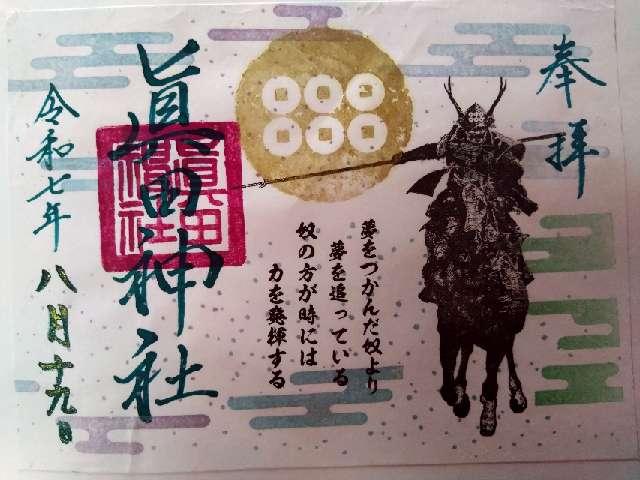 奉拝
夢をつかんだ奴より
夢を追っている
奴の方が時には
力を発揮する
眞田神社
眞田神社
令和七年
八月十九日